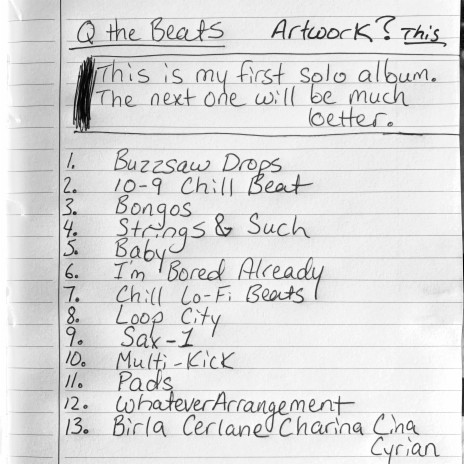 Q the Beats Artwork? This
This is my first solo album.
The next one will be much
better.
1. Buzzsaw Drops
2. 10-9 Chill Beat
3. Bongos
4. Strings & Such
5. Baby
6. I'm Bored Already
7. Chill Lo-Fi Beats
8. Loop City
9. Sax-1
10. Multi-Kick
11. Pads
12. WhateverArrangement
13. Birla Cerlane Charina Cina
Cyrian